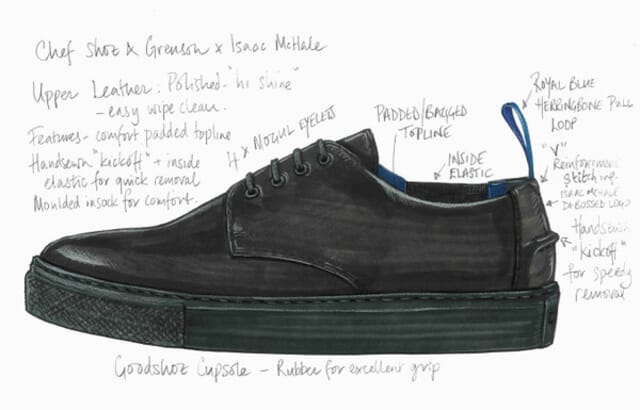 Chef Shoz & Grenson x Isaac McHale
Upper Leather: Polished "hi shine"
- easy wipe clean.
Features - comfort padded topline
Handsewn "kickoff" + inside
elastic for quick removal
Moulded insock for comfort.
4 x MOGUL EYELETS
PADDED/BAGGED
TOPLINE
INSIDE
ELASTIC
ROYAL BLUE
HERRINGBONE PULL
LOOP
"V"
Reinforcement
stitching.
ISAAC McHALE
DEBOSSED LOGO
Handsewn
"kickoff"
for speedy
removal
Goodshoz Cupsole - Rubber for excellent grip